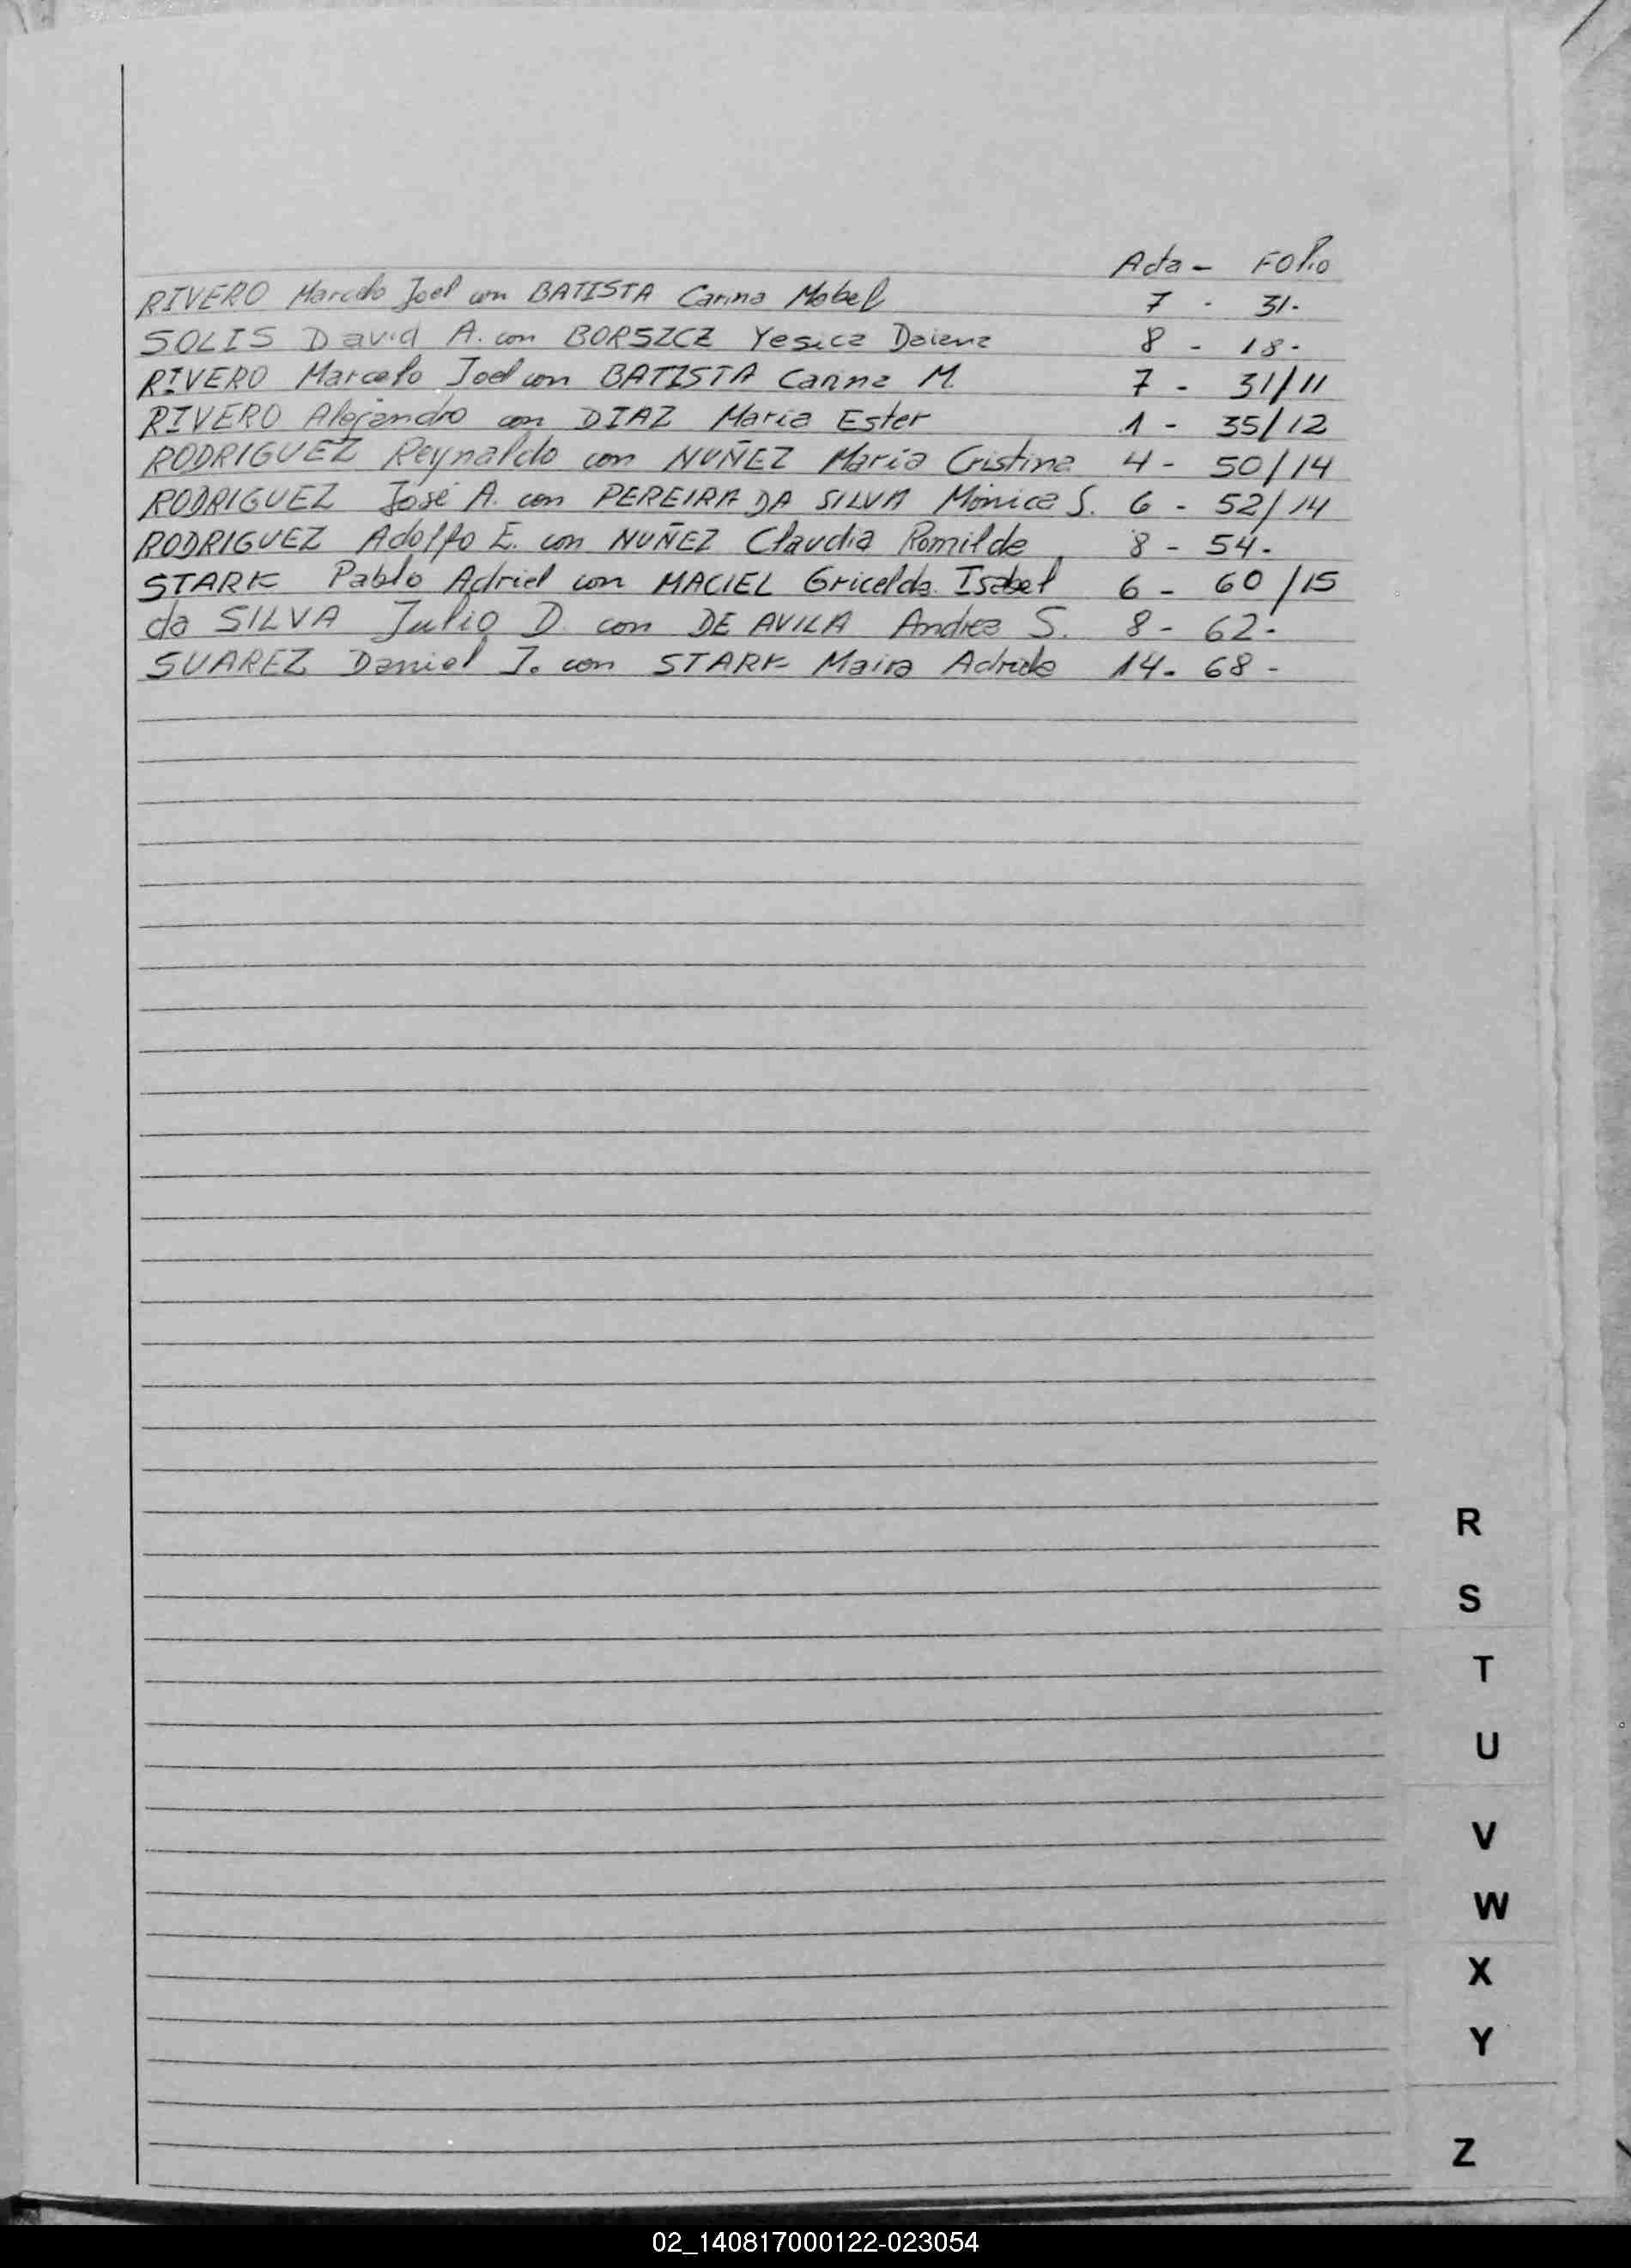 Acta - Folio
RIVERO Marcelo Joel con BATISTA Carina Mabel 7 - 31.
SOLIS David A. con BORSZCZ Yesica Daiana 8 - 18.
RIVERO Marcelo Joel con BATISTA Carina M. 7 - 31/11
RIVERO Alejandro con DIAZ Maria Ester 1 - 35/12
RODRIGUEZ Reynaldo con NUÑEZ María Cristina 4 - 50/14
RODRIGUEZ José A. con PEREIRA DA SILVA Mónica S. 6 - 52/14
RODRIGUEZ Adolfo E. con NUÑEZ Claudia Romilde 8 - 54.
STARK Pablo Adriel con MACIEL Gricelda Isabel 6 - 60/15
da SILVA Julio D. con DE AVILA Andrea S. 8 - 62.
SUAREZ Daniel J. con STARK Maira 14. 68 -
R
S
T
U
V
W
X
Y
Z
02_140817000122-023054